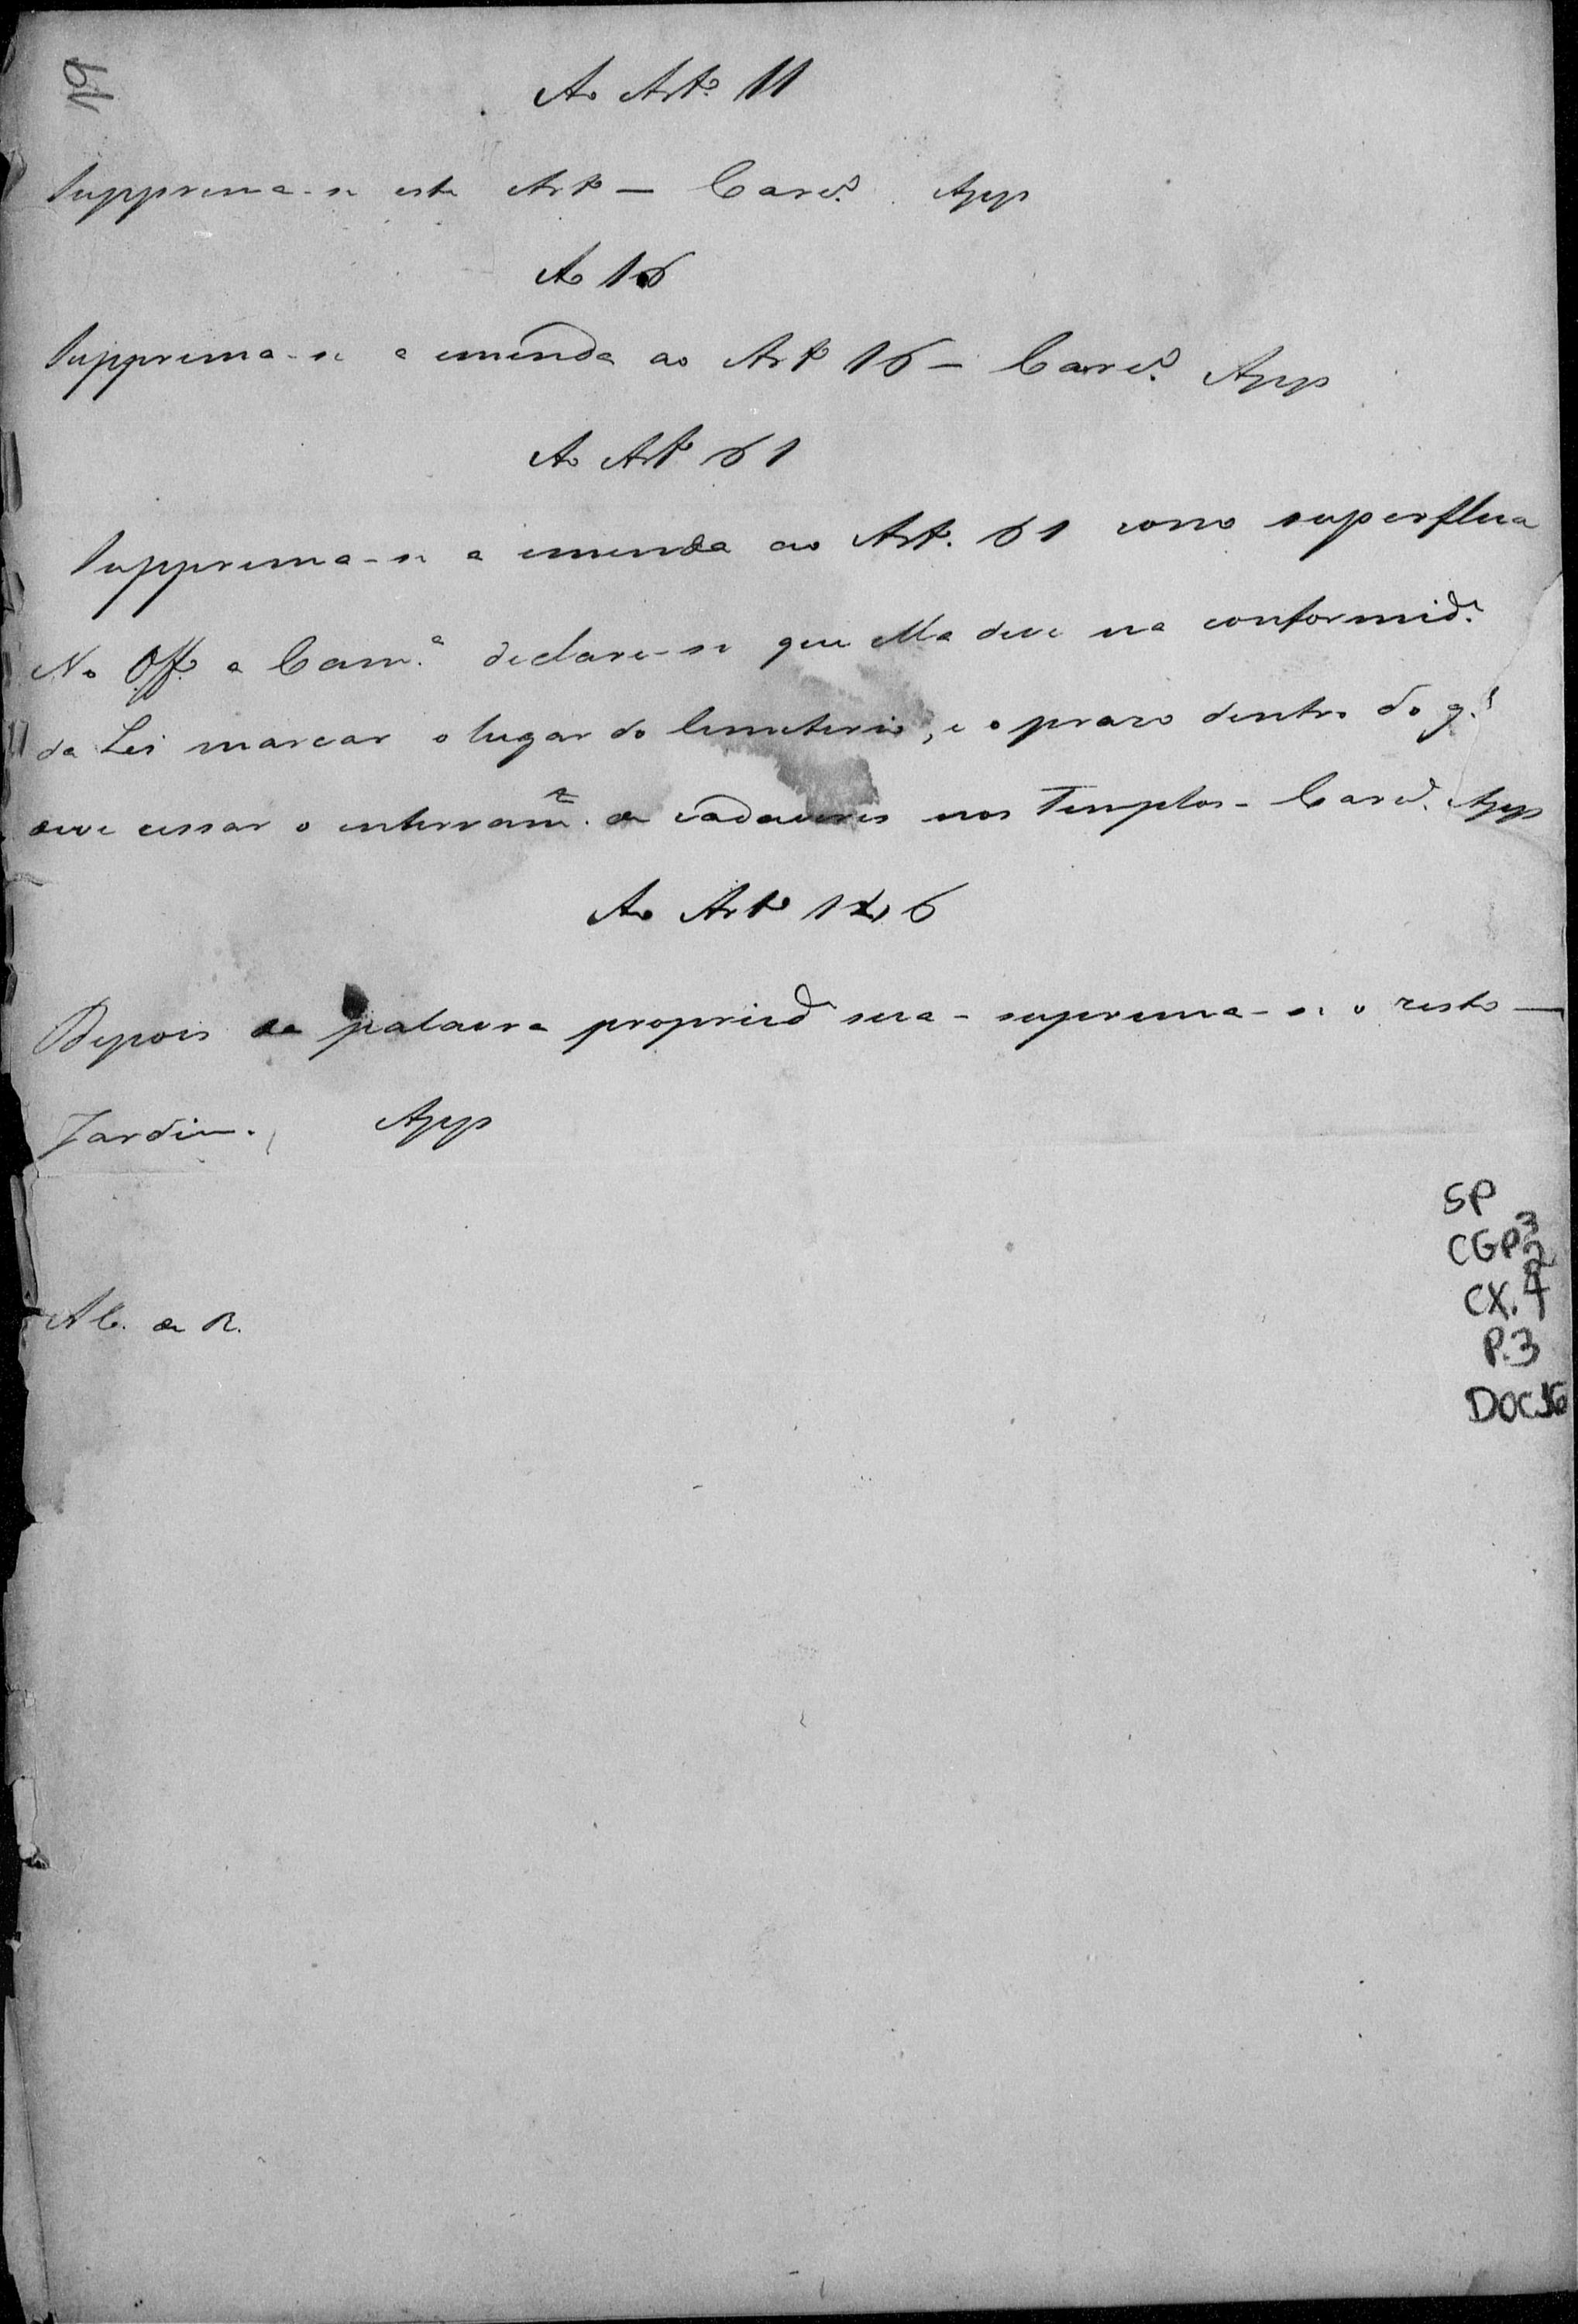 19
Ao Art.º 11
Supprima-se este Art.º — Card.º App
Ao 16
Supprima-se a emenda ao Art.º 16 — Card.º App
Ao Art.º 61
Supprima-se a emenda ao Art. 61 como superflua
No Off.º a Cam.ª declare-se que Ella deve na conformid.e
da Lei marcar o lugar do Cemiterio, e o prazo dentro do q.l
deve cessar o enterram.to de cadaveres nos Templos - Card.º App
Ao Art.º 146
Depois da palavra propried.e sua - suprima-se o resto —
Jardim. App
A C. de R.
SP
CGP3
CX.
P.3
DOC